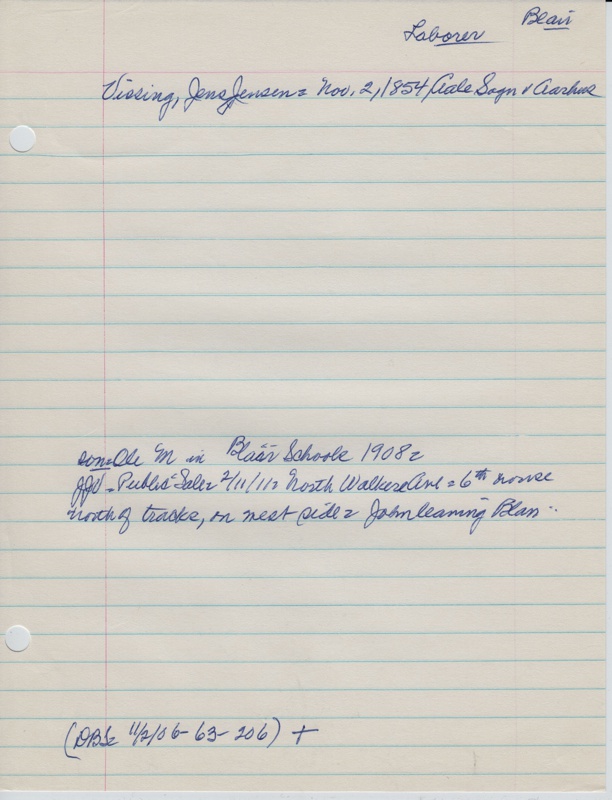 Laborer Blair
Vissing, Jens Jensen = Nov. 2, 1854, Aale Sogn v Aarhus
son = Ole M in Blair Schools 1908 =
JJV = Public Sale = 2/11/11 = North Walker Ave = 6th house
north of tracks, on west side = John leaving Blair ..
(DBS = 11/2/06 - 63 - 206) +